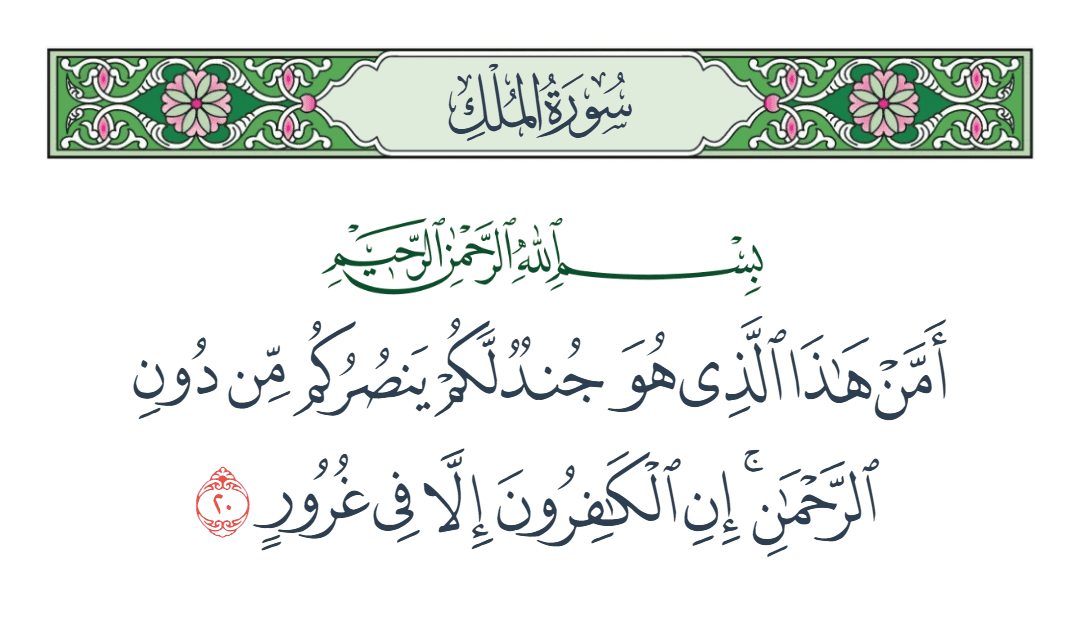 سُورَةُ المُلْكِ
بِسْمِ ٱللَّهِ ٱلرَّحْمَٰنِ ٱلرَّحِيمِ
أَمَّنْ هَٰذَا ٱلَّذِى هُوَ جُندٌ لَّكُمْ يَنصُرُكُم مِّن دُونِ
ٱلرَّحْمَٰنِ ۚ إِنِ ٱلْكَٰفِرُونَ إِلَّا فِى غُرُورٍ ٢٠